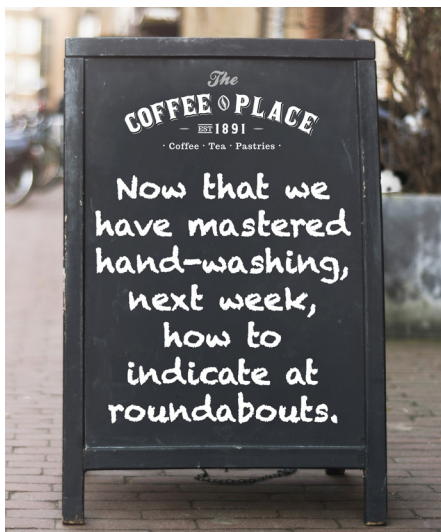 The
COFFEE PLACE
EST 1891
· Coffee · Tea · Pastries ·
Now that we
have mastered
hand-washing,
next week,
how to
indicate at
roundabouts.